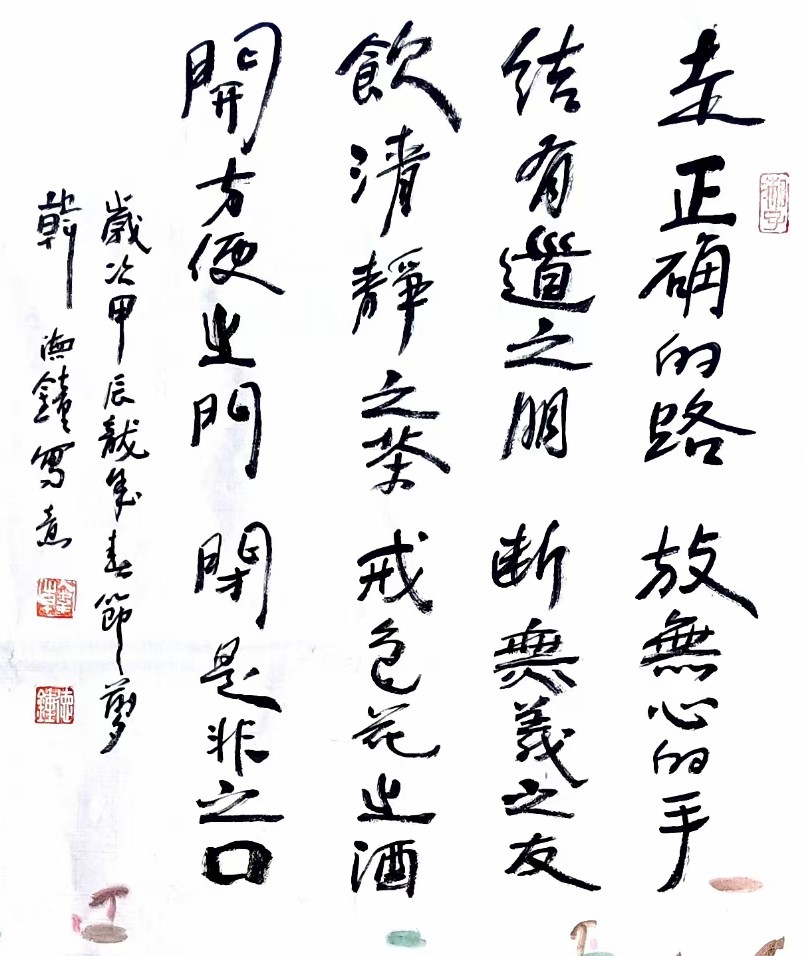 走正确的路 放無心的手
結有道之朋 断無義之友
飲清靜之茶 戒色花之酒
開方便之門 閉是非之口
歲次甲辰龍年春節前夕
韓德鐘寫意
德鐘